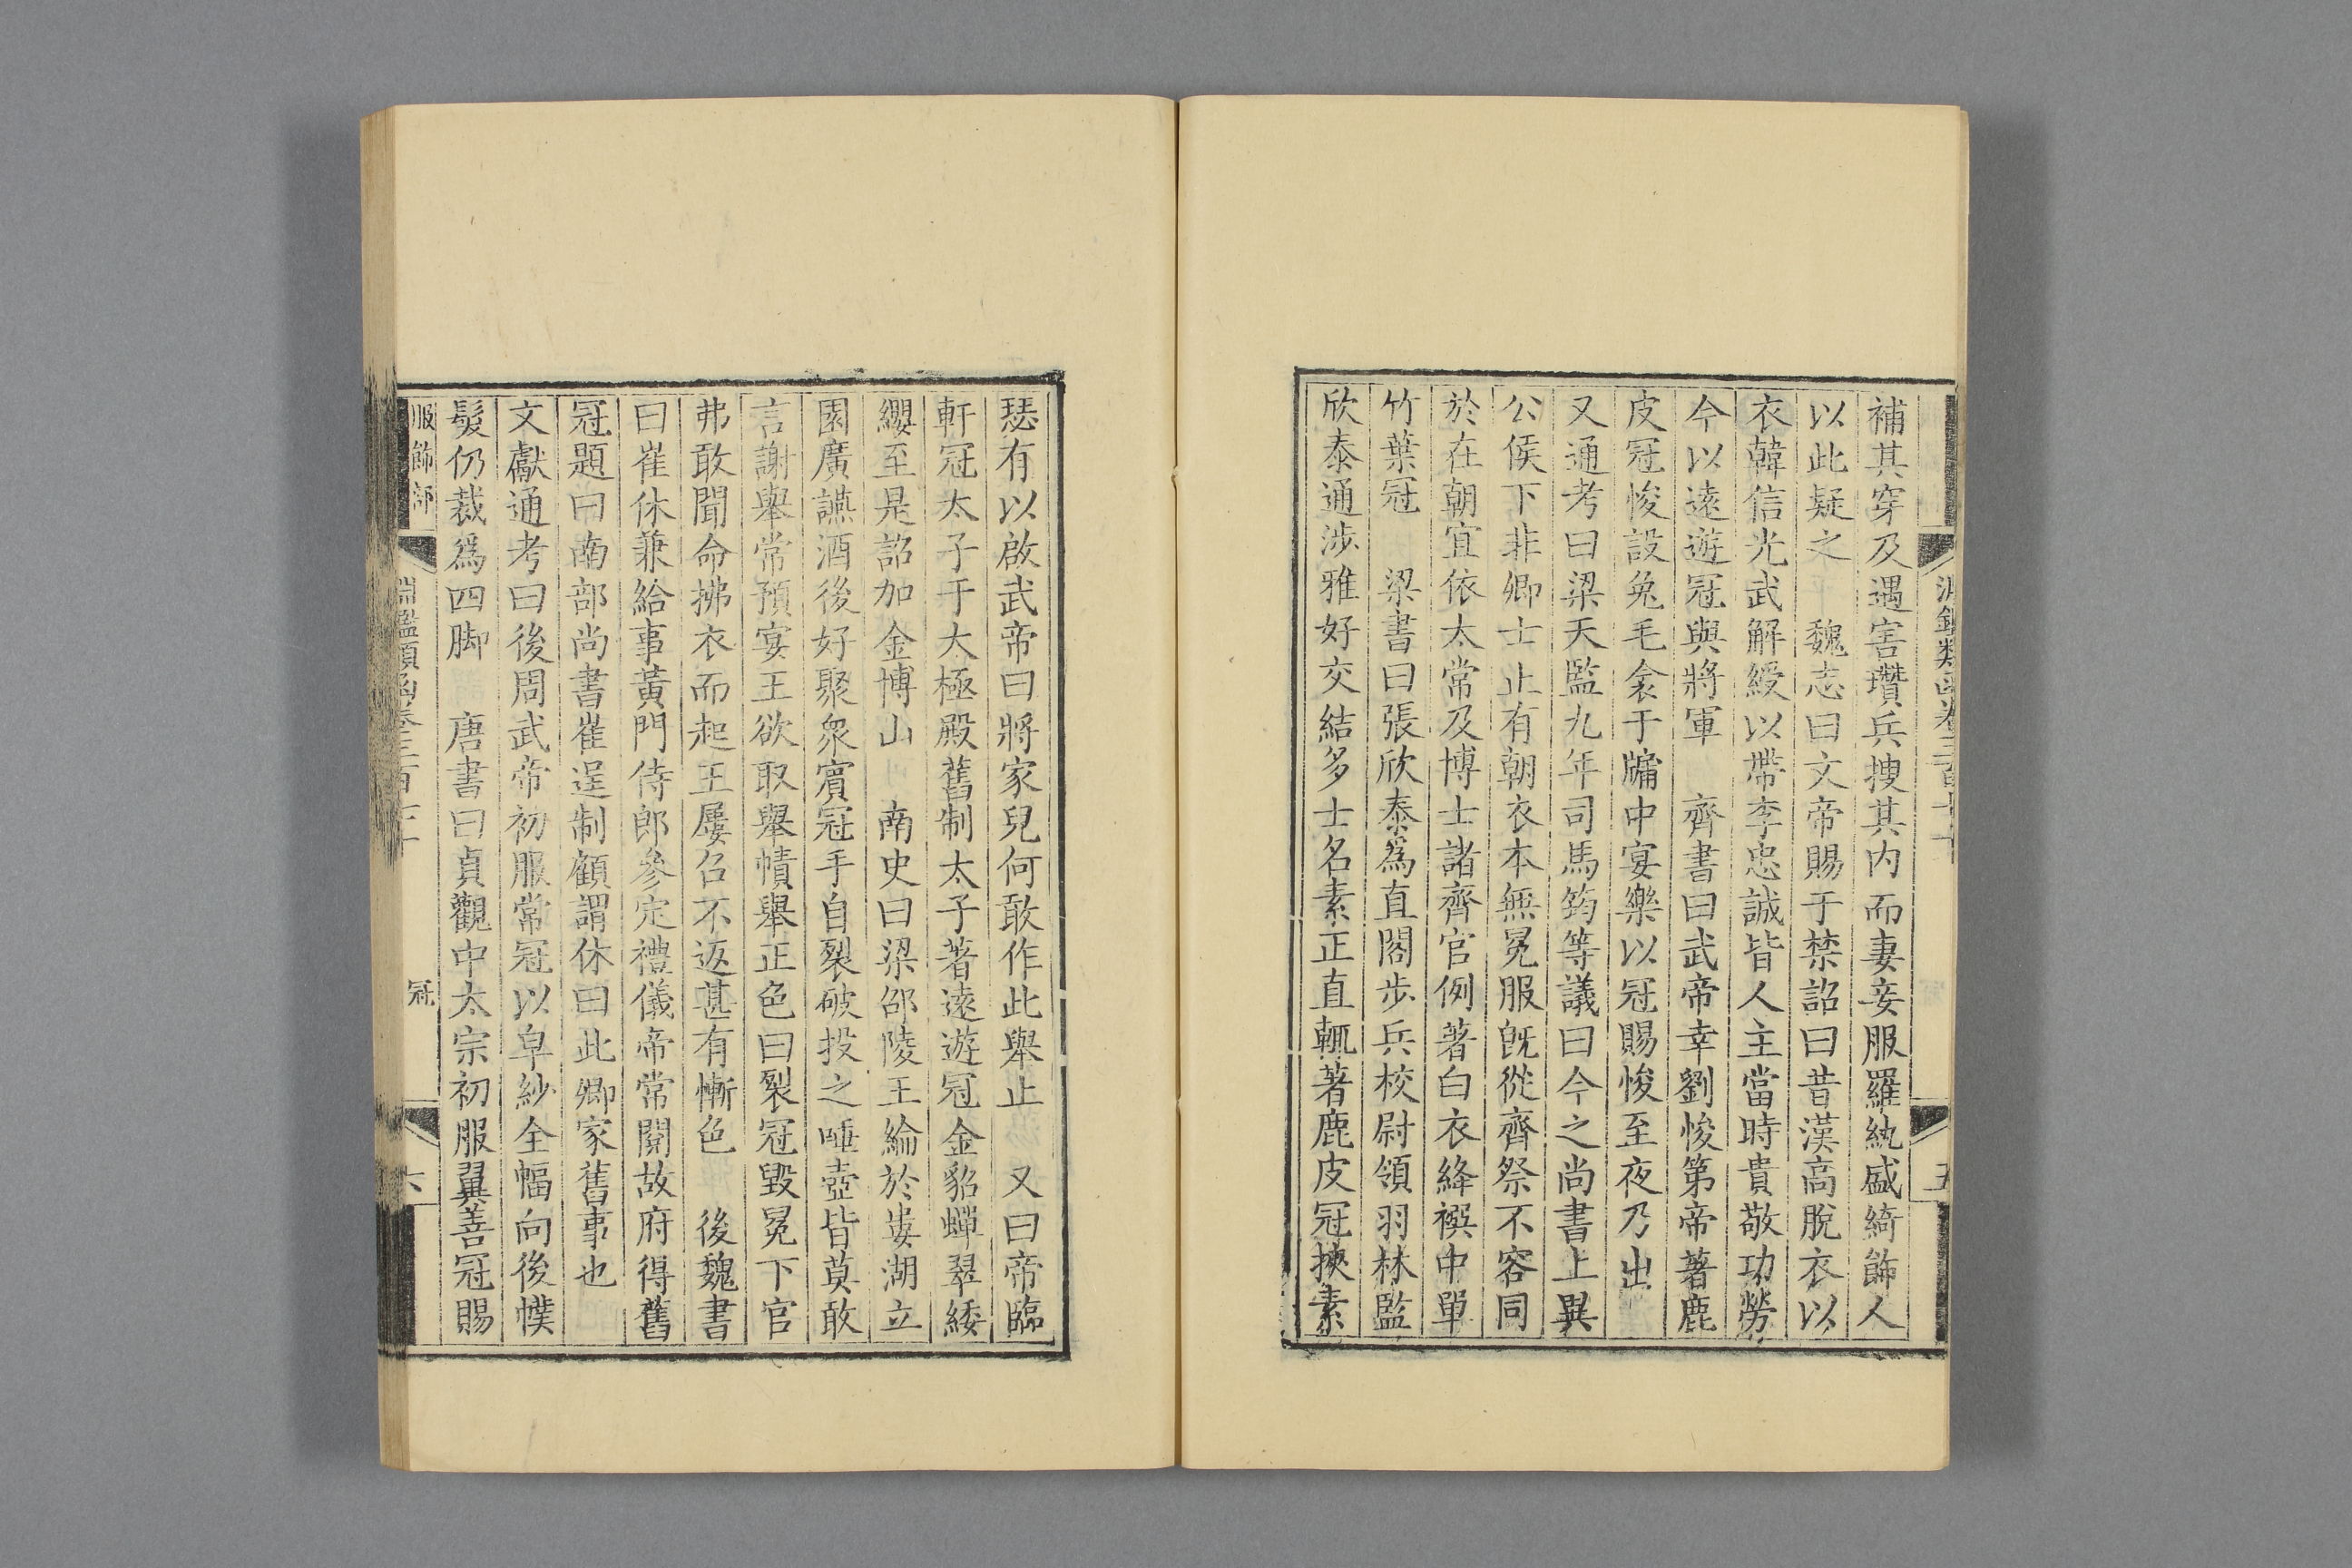 補其穿及遇害瓚兵捜其内而妻妾服羅紈盛綺飾人
以此疑之　魏志曰文帝賜于禁詔曰昔漢高脫衣以
衣韓信光武解綬以帶李忠誠皆人主當時貴敬功勞
今以遠遊冠與將軍　齊書曰武帝幸劉悛第帝著鹿
皮冠悛設兔毛衾于牖中宴樂以冠賜悛至夜乃出
又通考曰梁天監九年司馬筠等議曰今之尚書上異
公侯下非卿士止有朝衣本無冕服旣從齊祭不容同
於在朝宜依太常及博士諸齊官例著白衣絳襈中單
竹葉冠　梁書曰張欣泰爲直閤步兵校尉領羽林監
欣泰通涉雅好交結多士名素正直輒著鹿皮冠挾素
瑟有以啟武帝曰將家兒何敢作此舉止　又曰帝臨
軒冠太子于大極殿舊制太子著遠遊冠金貂蟬翠緌
纓至是詔加金博山　南史曰梁邵陵王綸於婁湖立
園廣讌酒後好聚衆賓冠手自裂破投之唾壺皆莫敢
言謝舉常預宴王欲取舉幘舉正色曰裂冠毀冕下官
弗敢聞命拂衣而起王屢召不返甚有慚色　後魏書
曰崔休兼給事黃門侍郎參定禮儀帝常閱故府得舊
冠題曰南部尚書崔逞制顧謂休曰此卿家舊事也
文獻通考曰後周武帝初服常冠以皁紗全幅向後幞
髮仍裁爲四脚　唐書曰貞觀中太宗初服翼善冠賜
服飾部
淵鑑類函卷三百七十
冠
六